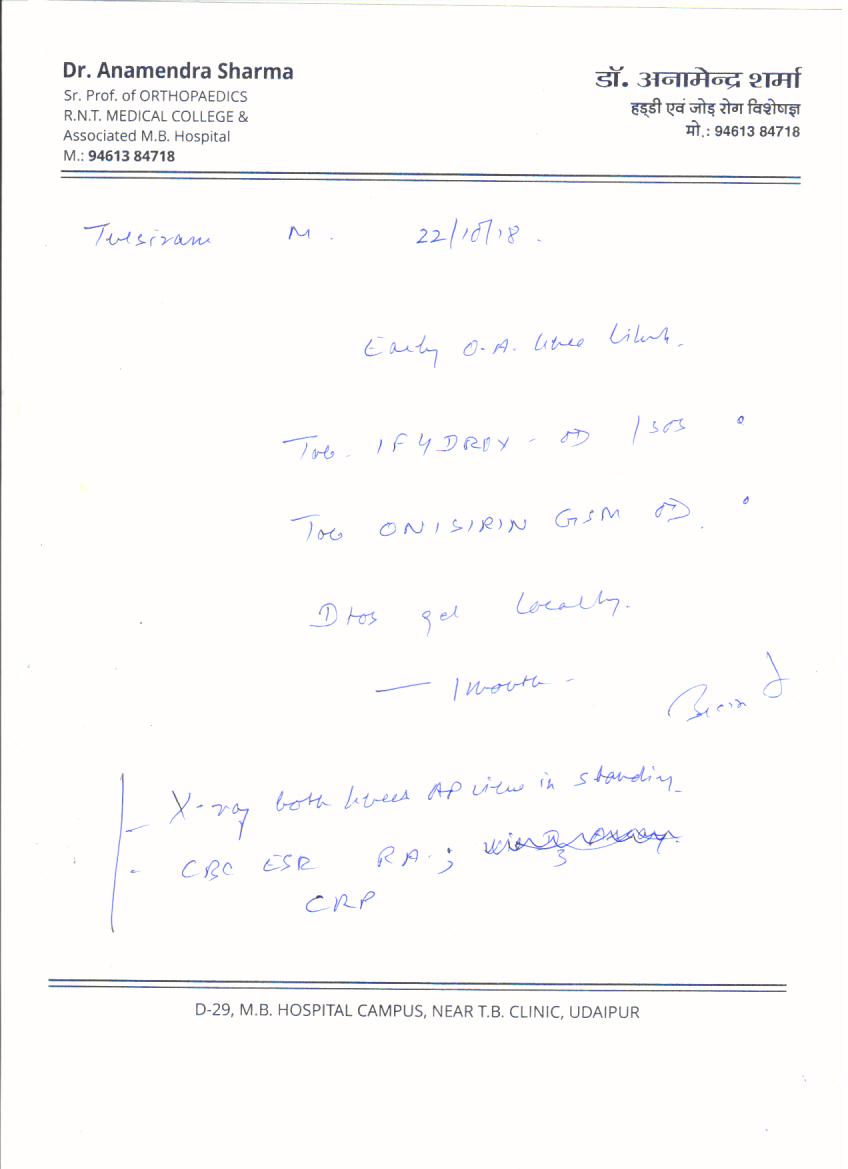 Dr. Anamendra Sharma
Sr. Prof. of ORTHOPAEDICS
R.N.T. MEDICAL COLLEGE &
Associated M.B. Hospital
M.: 94613 84718
डॉ. अनामेन्द्र शर्मा
हड्डी एवं जोड़ रोग विशेषज्ञ
मो.: 94613 84718
Tulsiram M. 22/10/18.
Early O.A. knee
Tab. OD /SOS
Tab ONISIRIN GSM OD.
gel locally.
— 1 month -
X-ray both knees AP view in standing
- CBC ESR RA ;
CRP
D-29, M.B. HOSPITAL CAMPUS, NEAR T.B. CLINIC, UDAIPUR